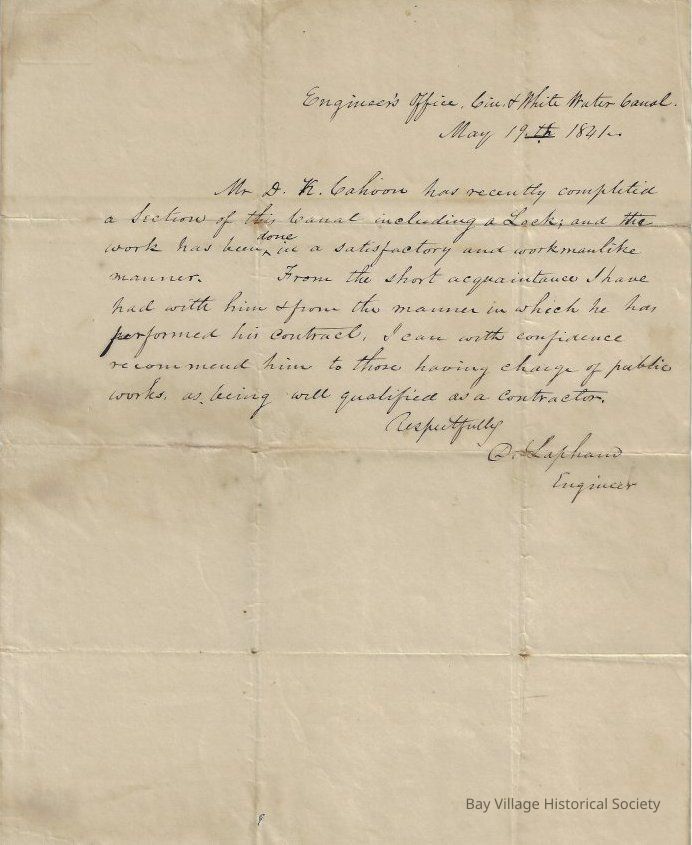 Engineer's Office, Cin. & White Water Canal.
May 19th 1841.
Mr D. K. Cahoon has recently completed
a Section of this Canal including a Lock; and the
work has been done in a satisfactory and workmanlike
manner. From the short acquaintance I have
had with him & from the manner in which he has
performed his contract, I can with confidence
recommend him to those having charge of public
works, as being well qualified as a contractor.
Respectfully
D. Lapham
Engineer
Bay Village Historical Society